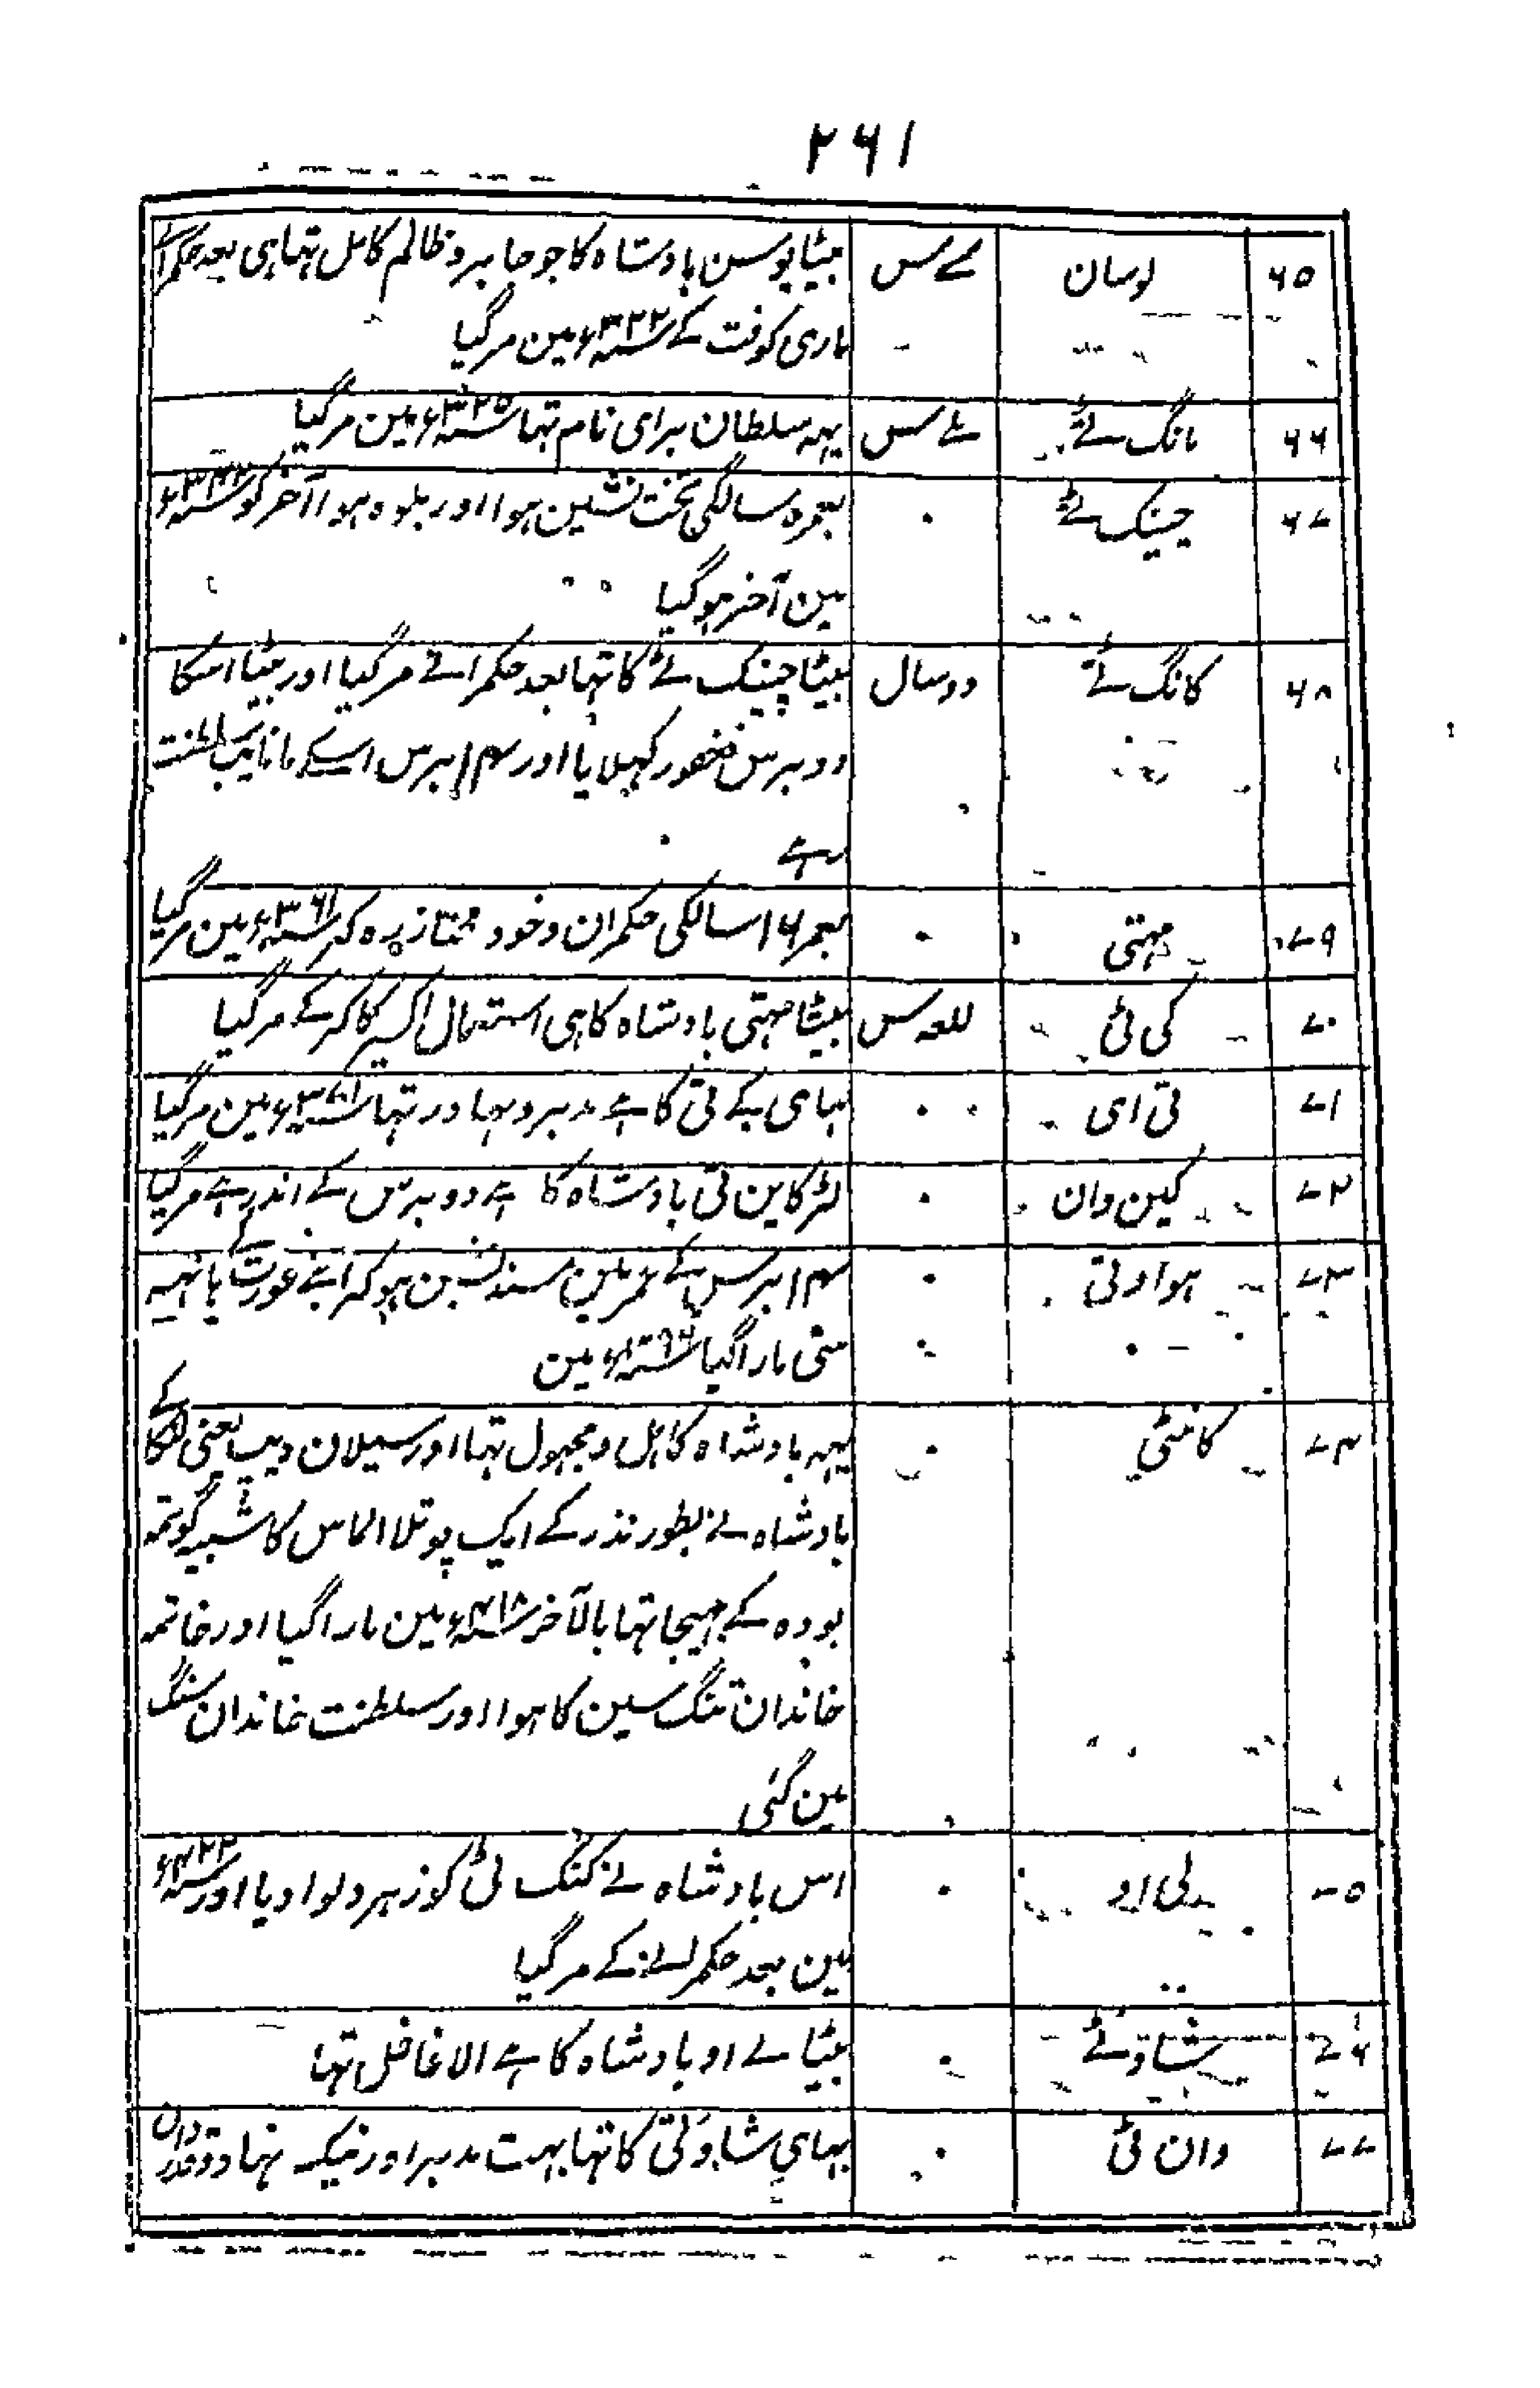 ۲۶۱
۶۵ لوسان بیٹا یوسن بادشاہ کا جو جابر و ظالم کامل تہا ہی بعد حکمرانے
ماری کوفت کے ۳۲۲ سنہء مین مر گیا
۶۶ مانگ ٹے یہہ سلطان برای نام تہا ۳۲۵ سنہء مین مر گیا
۶۷ چینک ٹے ۰ بعمر ہ سالگی تخت نشین ہوا اور بلوہ ہوا آخر کو ۳۴۲ سنہء
مین آخر ہو گیا
۶۸ کانگ ٹے دو سال بیٹا چینک ٹے کا تہا بعد حکمرانے مر گیا اور بیٹا اسکا
دو برس فغفور کہلایا اور ۱۴ برس اسکے ما نایب سلطنت
رہے
۶۹ مہتی ۰ بعمر ۱۶ سالگی حکمران و خود مختار رہ کر ۳۶۱ سنہء مین مر گیا
۷۰ کی ٹی للعہ س بیٹا مہتی بادشاہ کا ہی استعمال اکسیر کا کر کے مر گیا
۷۱ تی ای ۰ بہای کے تی کا ہے مدبر و بہادر تہا سنہء مین مر گیا
۷۲ کین وان ۰ لڑکا ین تی بادشاہ کا ہے دو برس کے اندر ہے مر گیا
۷۳ ہوا وتی ۰ ۱۴ برس کے عمر مین مسند نشین ہو کر اپنے عورت کے ہاتہہ
سی مارا گیا سنہء مین
۷۴ کانٹی ۰ یہہ بادشاہ کاہل و مجہول تہا اور سیلان دیپ یعنی لنکا کے
بادشاہ نے بطور نذر کے ایک پوتلا الماس کا شبیہ گوتمہ
بودہ کے بہیجا تہا بالآخر ۴۱۸ سنہء مین مارا گیا اور خاتمہ
خاندان تنگ سین کا ہوا اور سلطنت خاندان سنگ
مین گئی
۷۵ لی او ۰ اس بادشاہ نے کنک ٹی کو زہر دلوا دیا اور ۴۲۲ سنہء
مین بعد حکمرانے کے مر گیا
۷۶ شاوٹے ۰ بیٹا لے او بادشاہ کا ہے الا غافل تہا
۷۷ وان ٹی ۰ بہای شاوٹی کا تہا بہت مدبر اور نیک نہاد و قدردان